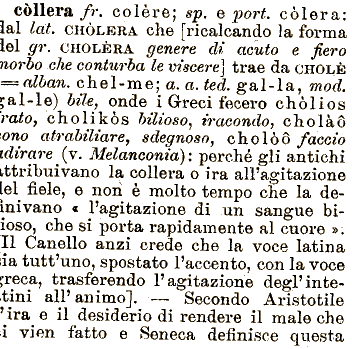 còllera fr. colère; sp. e port. còlera:
dal lat. CHÒLERA che [ricalcando la forma
del gr. CHOLÈRA genere di acuto e fiero
morbo che conturba le viscere] trae da CHOLÈ
= alban. chel-me; a. a. ted. gal-la, mod.
gal-le) bile, onde i Greci fecero chòlios
irato, cholikòs bilioso, iracondo, cholàô
sono atrabiliare, sdegnoso, cholòô faccio
adirare (v. Melanconia): perché gli antichi
attribuivano la collera o ira all'agitazione
del fiele, e non è molto tempo che la de-
finivano « l'agitazione di un sangue bi-
lioso, che si porta rapidamente al cuore ».
[Il Canello anzi crede che la voce latina
sia tutt'uno, spostato l'accento, con la voce
greca, trasferendo l'agitazione degl'inte-
stini all'animo]. — Secondo Aristotile
l'ira e il desiderio di rendere il male che
ci vien fatto e Seneca definisce questa